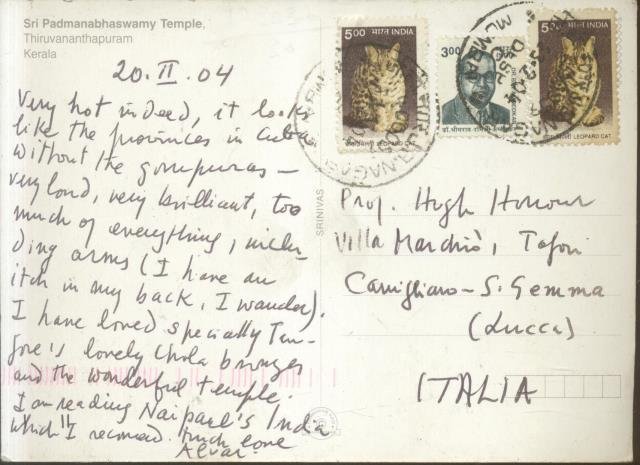 Sri Padmanabhaswamy Temple,
Thiruvananthapuram
Kerala
20.II.04
Very hot indeed, it looks
like the provinces in Cuba
without the gompuras –
very loud, very brilliant, too
much of everything, inclu-
ding arms (I have an
itch in my back, I wander).
I have loved specially Tan-
jore's lovely Chola bronzes
and the wonderful temple.
I am reading Naipaul's India
which I recomend. Much love
Alvar.
SRINIVAS
5.00 भारत INDIA
LEOPARD CAT
3.00
5.00 भारत INDIA
LEOPARD CAT
Prof. Hugh Honour
Villa Marchiò, Tofori
Camigliano – S. Gemma
(Lucca)
ITALIA